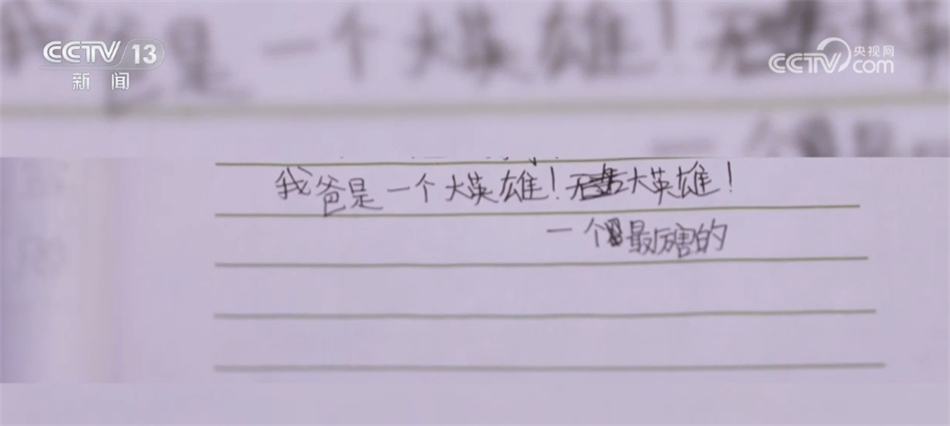 CCTV 13
新闻
央视网
CCTV com
我爸是一个大英雄！大英雄！
一个最厉害的